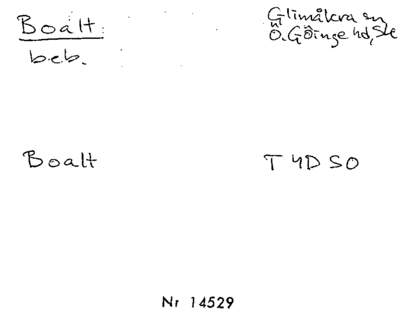 Boalt
Glimåkra sn
Ö. Göinge hd, Sk
beb.
Boalt
T 4D SO
Nr 14529